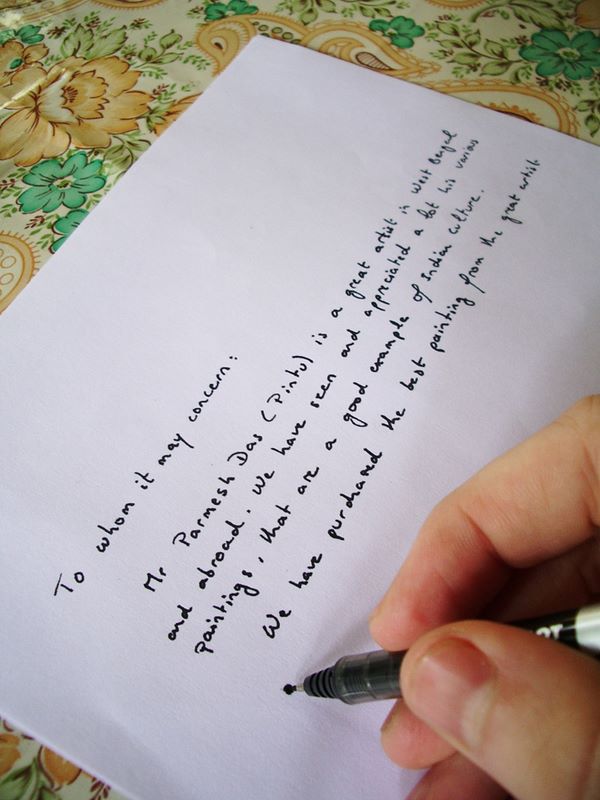 To whom it may concern:
Mr Parmesh Das (Pintu) is a great artist in West Bengal
and abroad. We have seen and appreciated a lot his various
paintings, that are a good example of Indian culture.
We have purchased the best painting from the great artist